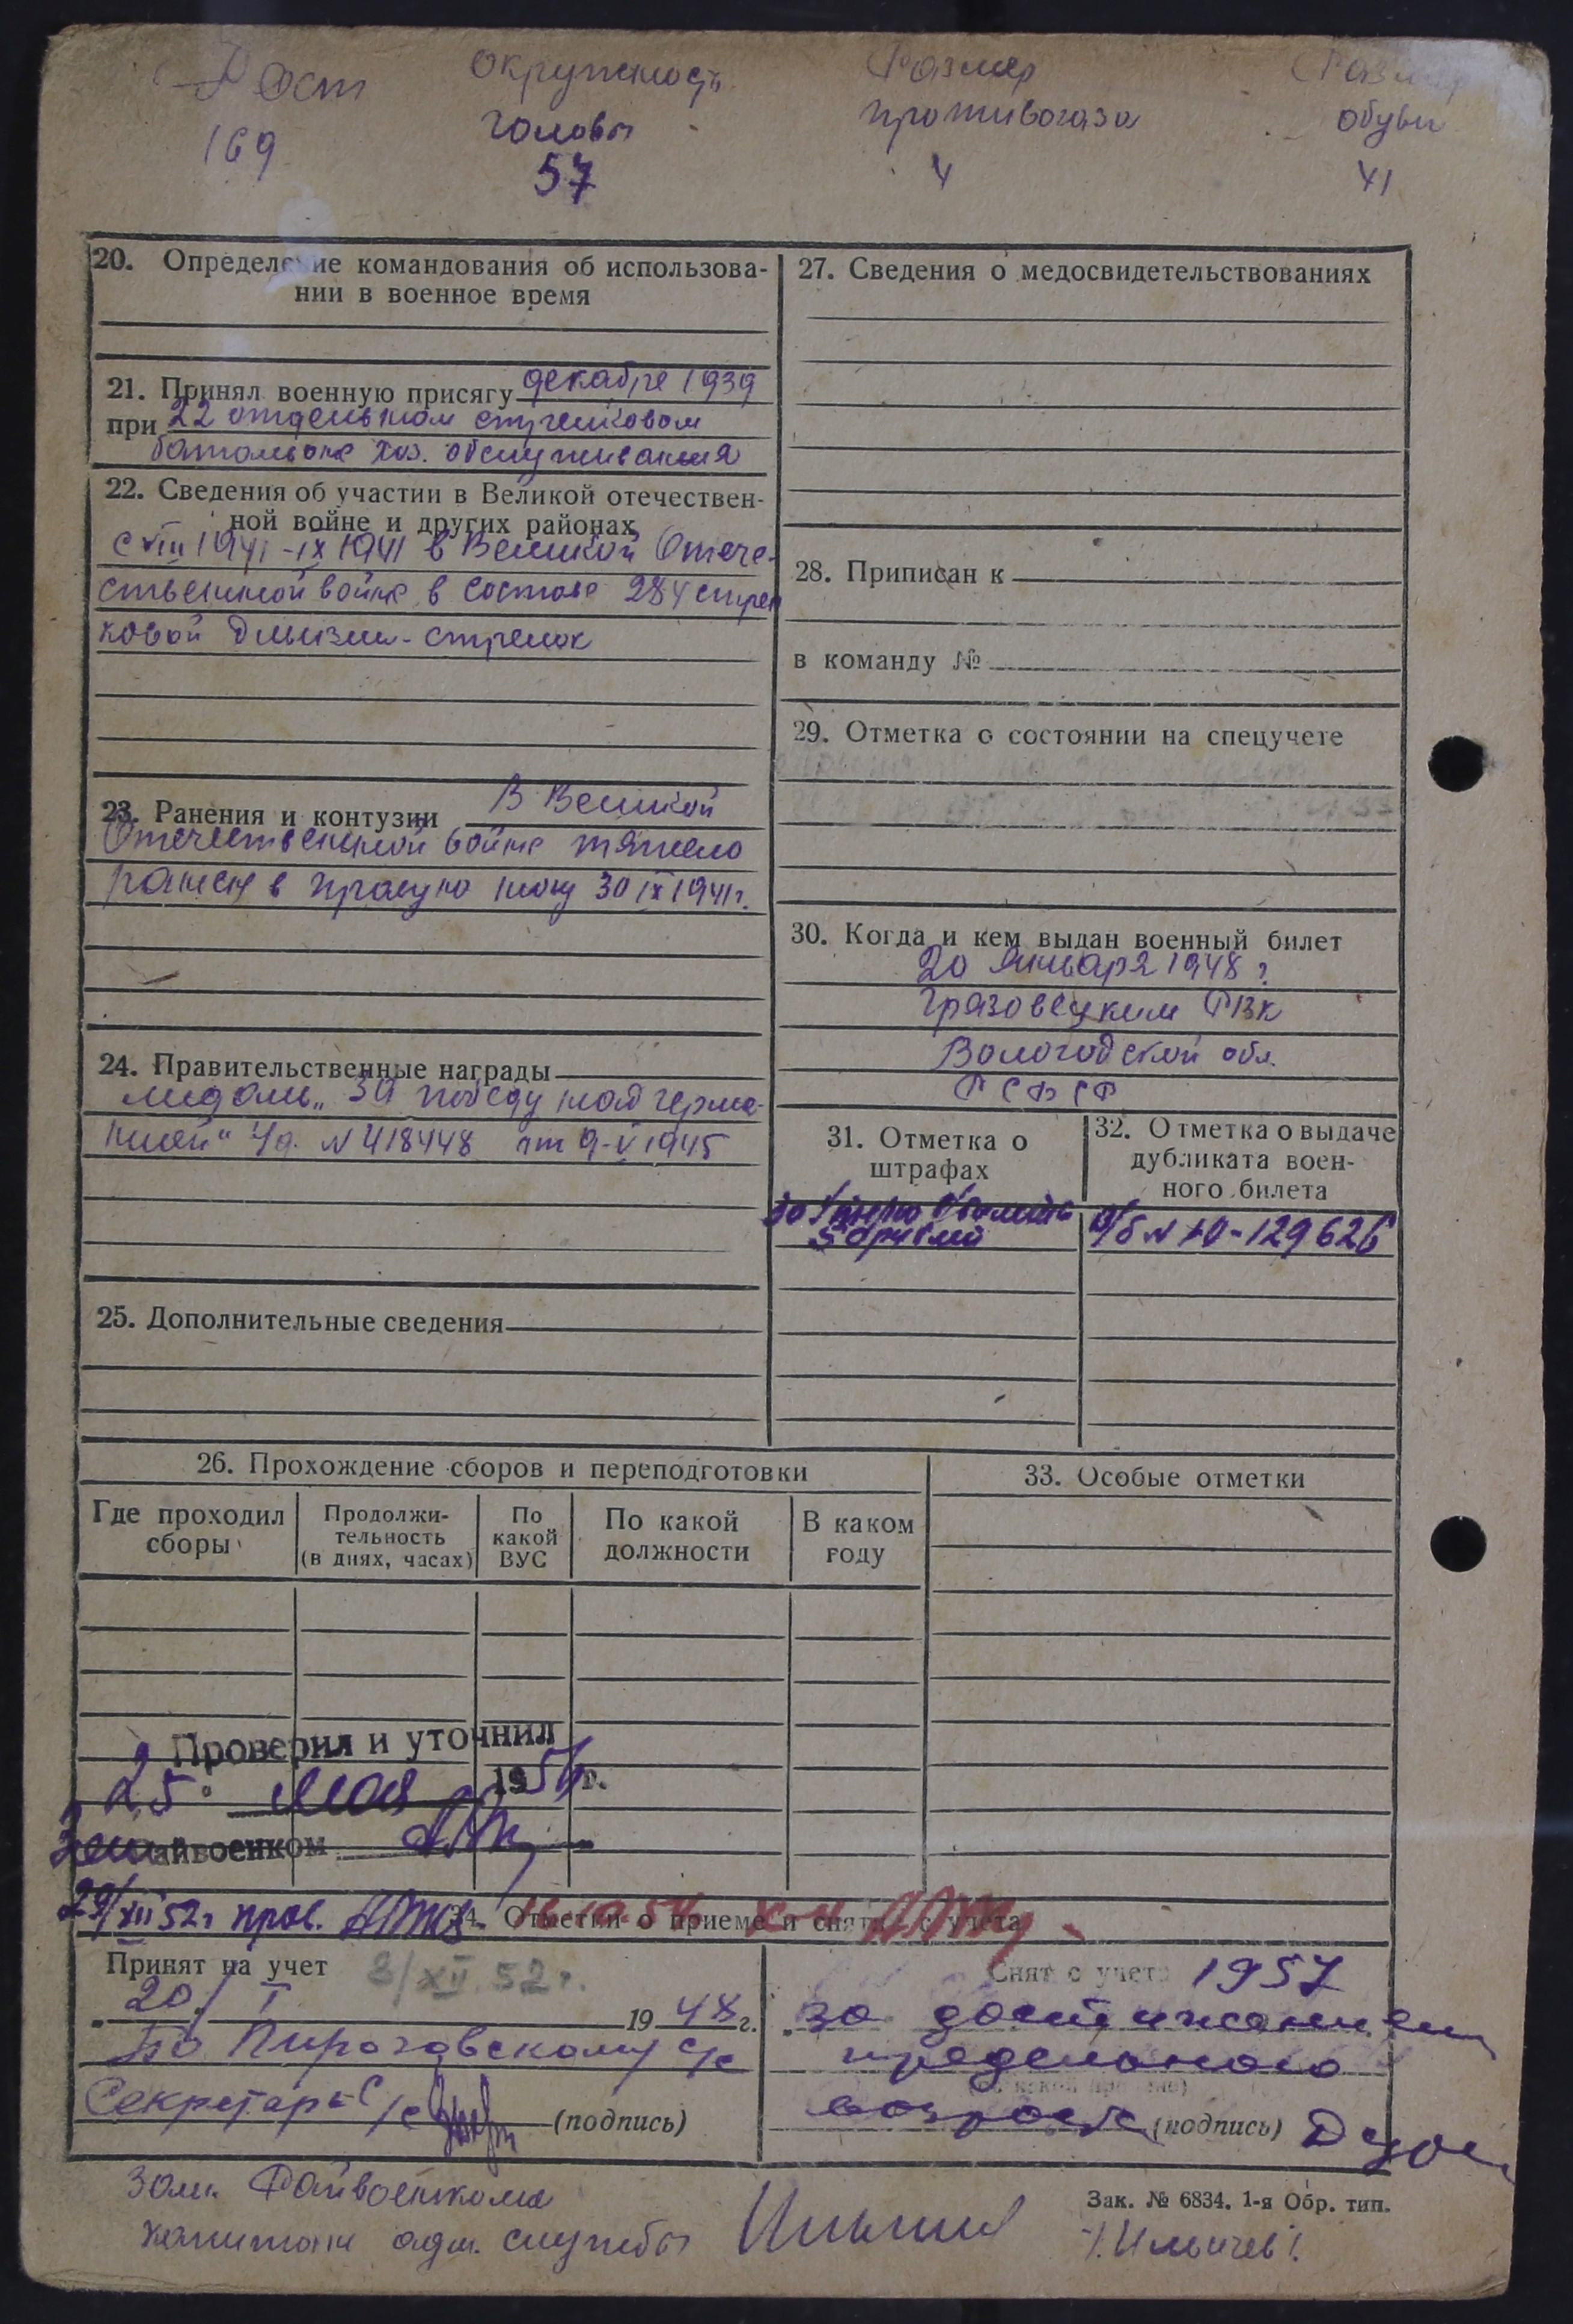 Рост
Окружность
Размер
Размер
головы
противогаза
обуви
169
57
4
41
20. Определение командования об использова-
нии в военное время
21. Принял военную присягу декабре 1939
при 22 отдельном стрелковом
батальоне хоз. обслуживания
22. Сведения об участии в Великой отечествен-
ной войне и других районах
с VIII 1941 - IX 1941 в Великой Отече-
ственной войне в составе 284 стрел
ковой дивизии - стрелок
23. Ранения и контузии В Великой
Отечественной войне тяжело
ранен в правую ногу 30 IX 1941г.
24. Правительственные награды
медаль „За победу над Герма-
нией" Уд. № 418448 от 9-V 1945
25. Дополнительные сведения
27. Сведения о медосвидетельствованиях
28. Приписан к
в команду №
29. Отметка о состоянии на спецучете
30. Когда и кем выдан военный билет
20 января 1948 г
Грязовецким РВК
Вологодской обл.
РСФСР
31. Отметка о
штрафах
За утерю в/билета
50 рублей
32. Отметка о выдаче
дубликата воен-
ного билета
в/б № 129626
26. Прохождение сборов и переподготовки
Где проходил
сборы
Продолжи-
тельность
(в днях, часах)
По
какой
ВУС
По какой
должности
В каком
году
33. Особые отметки
Проверил и уточнил
25 мая 195 г.
Зам райвоенком
29/XII 52г пров.
34. Отметки о приеме и снятии с учета
Принят на учет 3/XII 52г.
20/I 1948г.
По Пироговскому с/с
Секретарь с/с (подпись)
Снят с учета 1957
за достижением
предельного
возраста (подпись)
Зам. Райвоенкома
капитан адм. службы
Зак. № 6834. 1-я Обр. тип.
/Ильичев/.